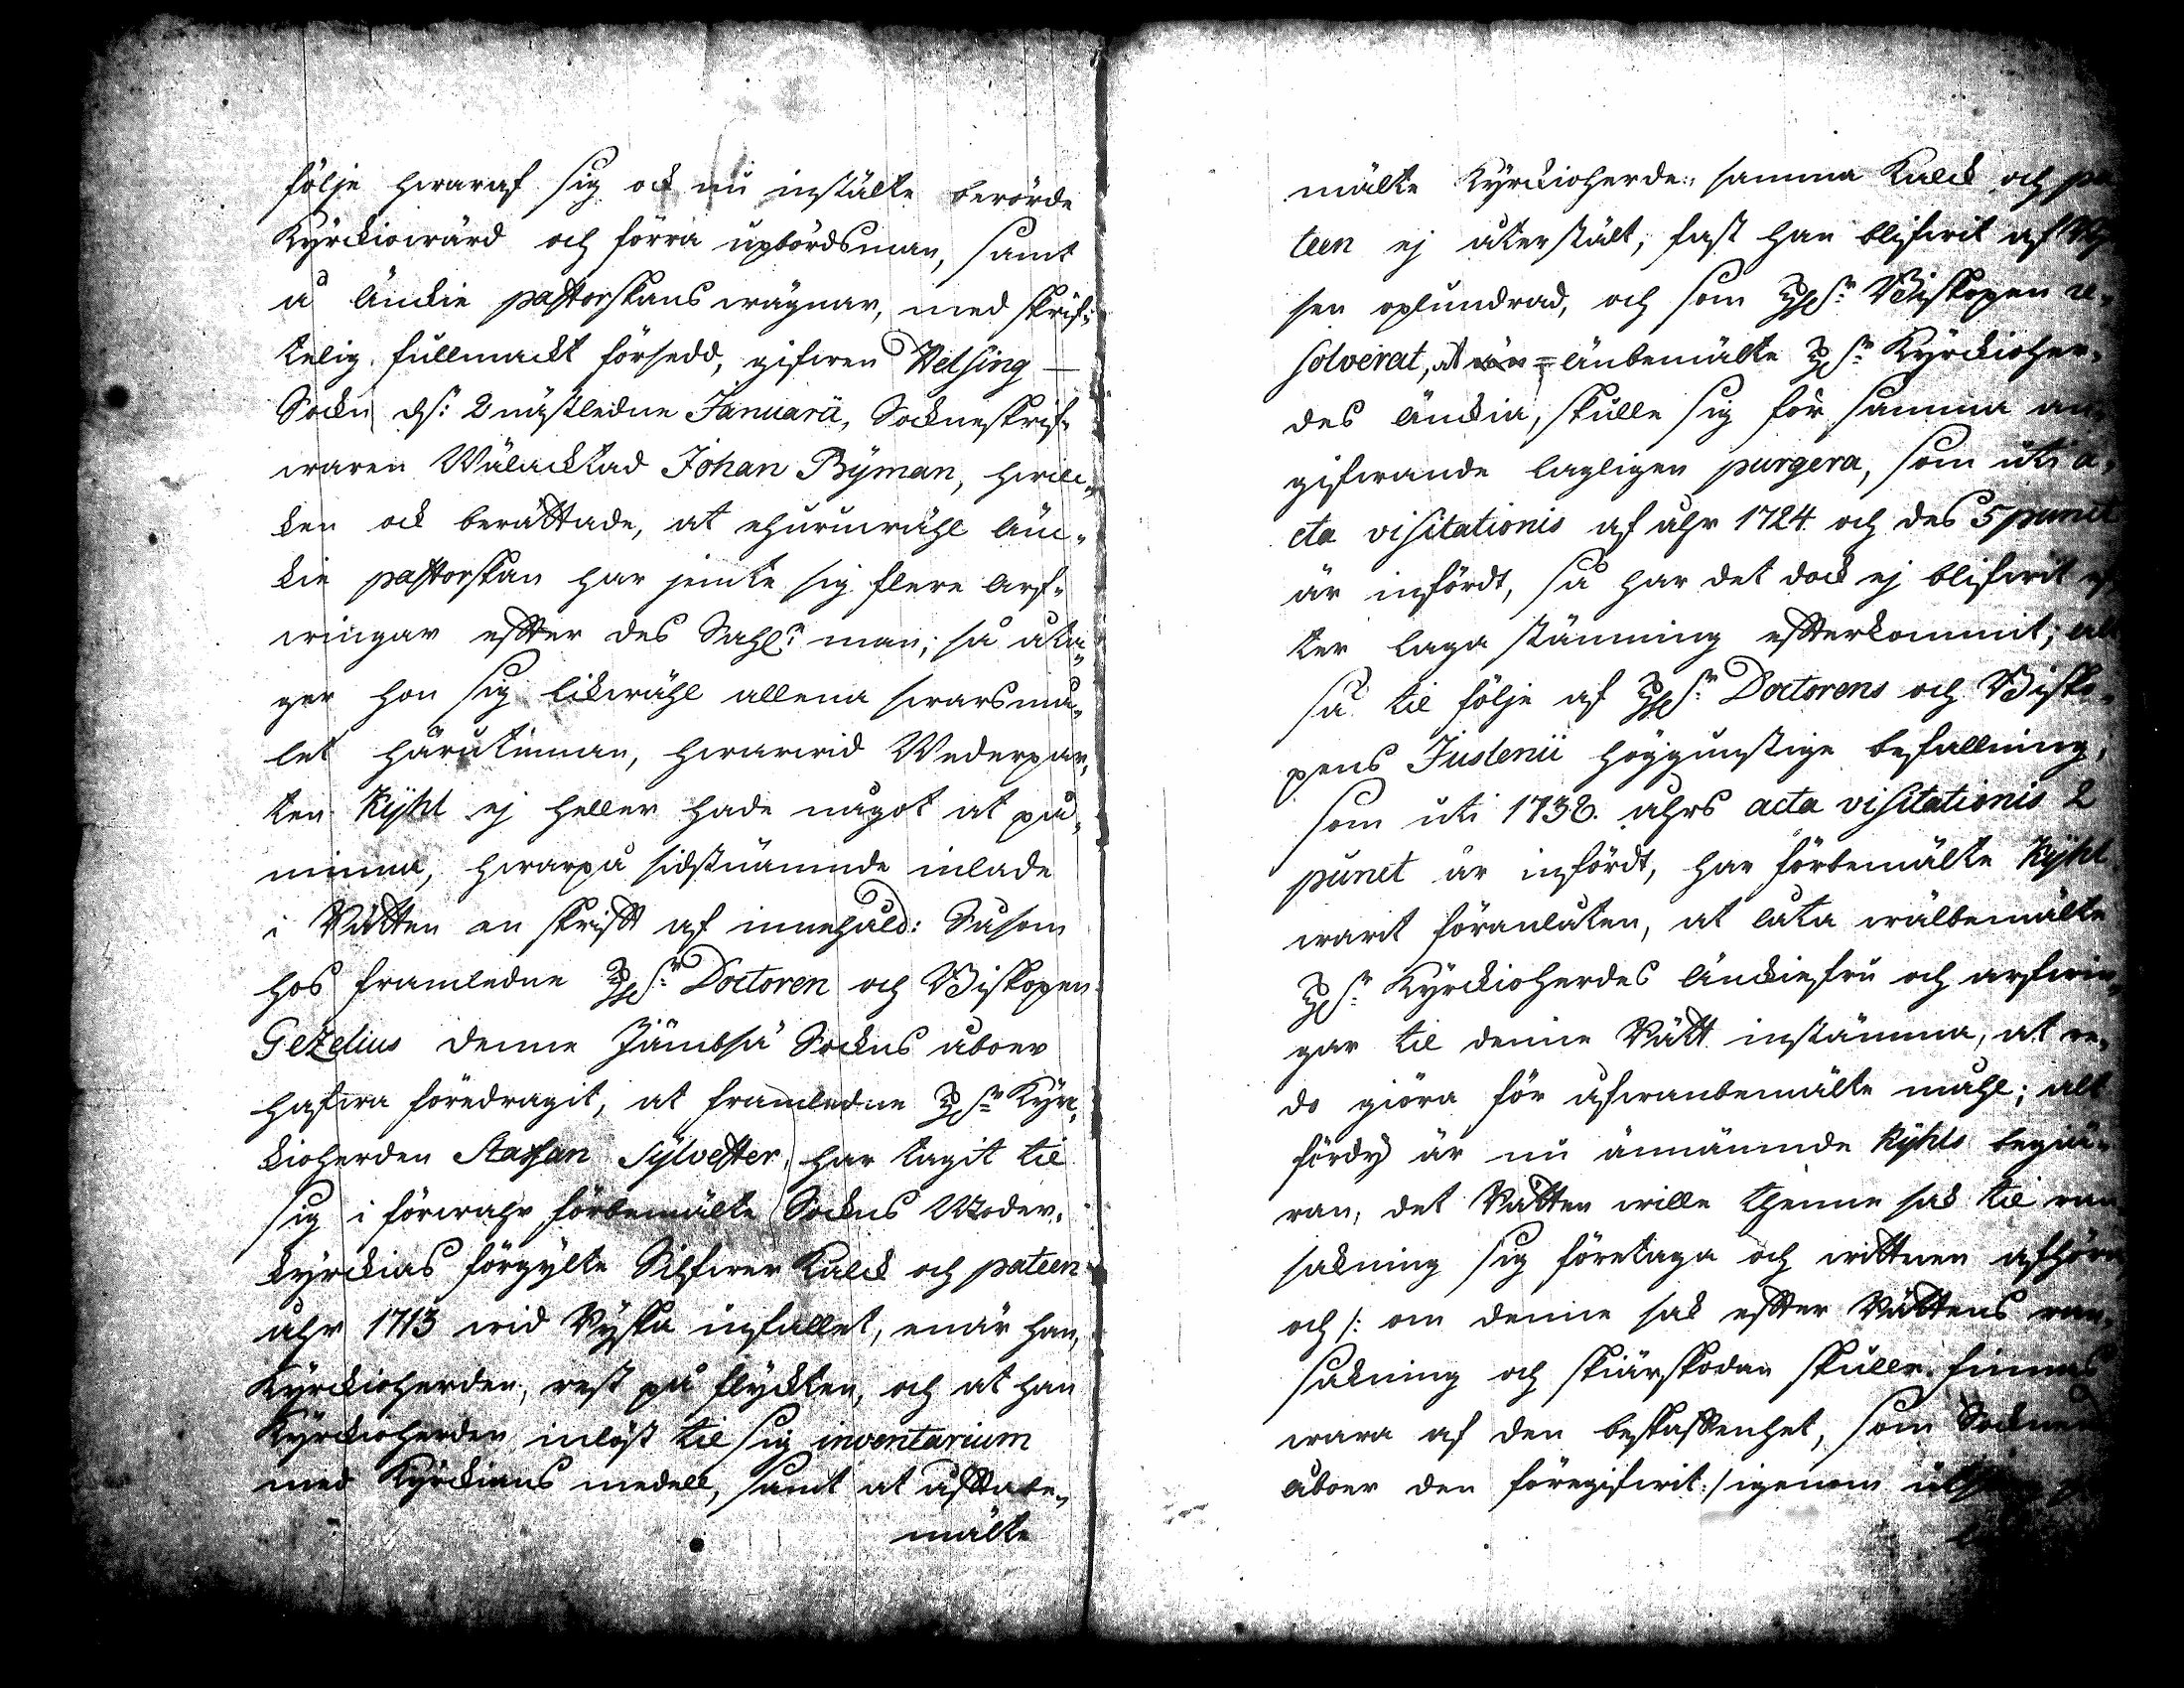 följe hwaraf sig ock nu instälte berörde
Kyrckiowärd och förra upbördsman, samt
å änckie pastorskans wägnar, med skrif-
telig fullmackt försedd, gifwen Velsing
Sockn d. 2 nästledne Januarii, Sockneskrif-
waren Wälacktad Johan Ryman, hwilc-
ken ock berättade, at ehuruwähl änc-
kie pastorskan har jemte sig flere arf-
wingar effter des Sahl. man; så åta-
ger hon sig likwähl allena swarsmå-
let härutinnan, hwarwid Wederpar-
ten Kÿhl ej heller hade något at på-
minna, hwarpå sidstnämnde inlade
i Rätten en skrifft af innehåld: Såsom
hos framledne H:r Doctoren och Biskopen
Gezelius denne Jämbsä Sockns åboer
hafwa föredragit, at framledne H:r Kyrc-
kioherden Staffan Sylvester, har tagit til
sig i förwahr förbemälte Sockns Moder-
kyrckias förgylte Silfwer Kalck och pateen
åhr 1713 wid Ryska infallet, enär han,
Kyrckioherden, rest på flyckten, och at han
Kyrckioherden inlöst til sig inventarium
med Kyrckians medell, samt at offtabe-
mälte
mälte Kyrckioherde samma Kalck och pa-
teen ej återstält, fast han blifwit af Rys-
sen oplundrad, och som H:r Biskopen re-
solverat, at änbemälte H:r Kyrckioher-
des änckia, skulle sig för samma an-
gifwande lagligen purgera, som uti a-
cta visitationis af åhr 1724 och des 5 punct
är infördt, så har det dock ej blifwit ef-
ter laga stämning effterkommit; alt
så til följe af H:r Doctorens och Bisko-
pens Juslenii höggunstige befallning,
som uti 1738. åhrs acta visitationis 2
punct är infördt, har förbemälte Kÿhl
warit föranlåten, at låta wälbemälte
H:r Kyrckioherdes änckiefru och arfwin-
gar til denne Rätt instämma, at re-
do giöra för ofwanbemälte måhl; alt
fördy är nu ännämnde Kÿhls begiä-
ran, det Rätten wille thenne sak til ran-
sakning sig företaga och wittnen afhöra
och /: om denne sak effter Rättens ran-
sakning och skiärskodan skulle finnas
wara af den beskaffenhet, som Sockne
åboer den föregifwit :/ igenom